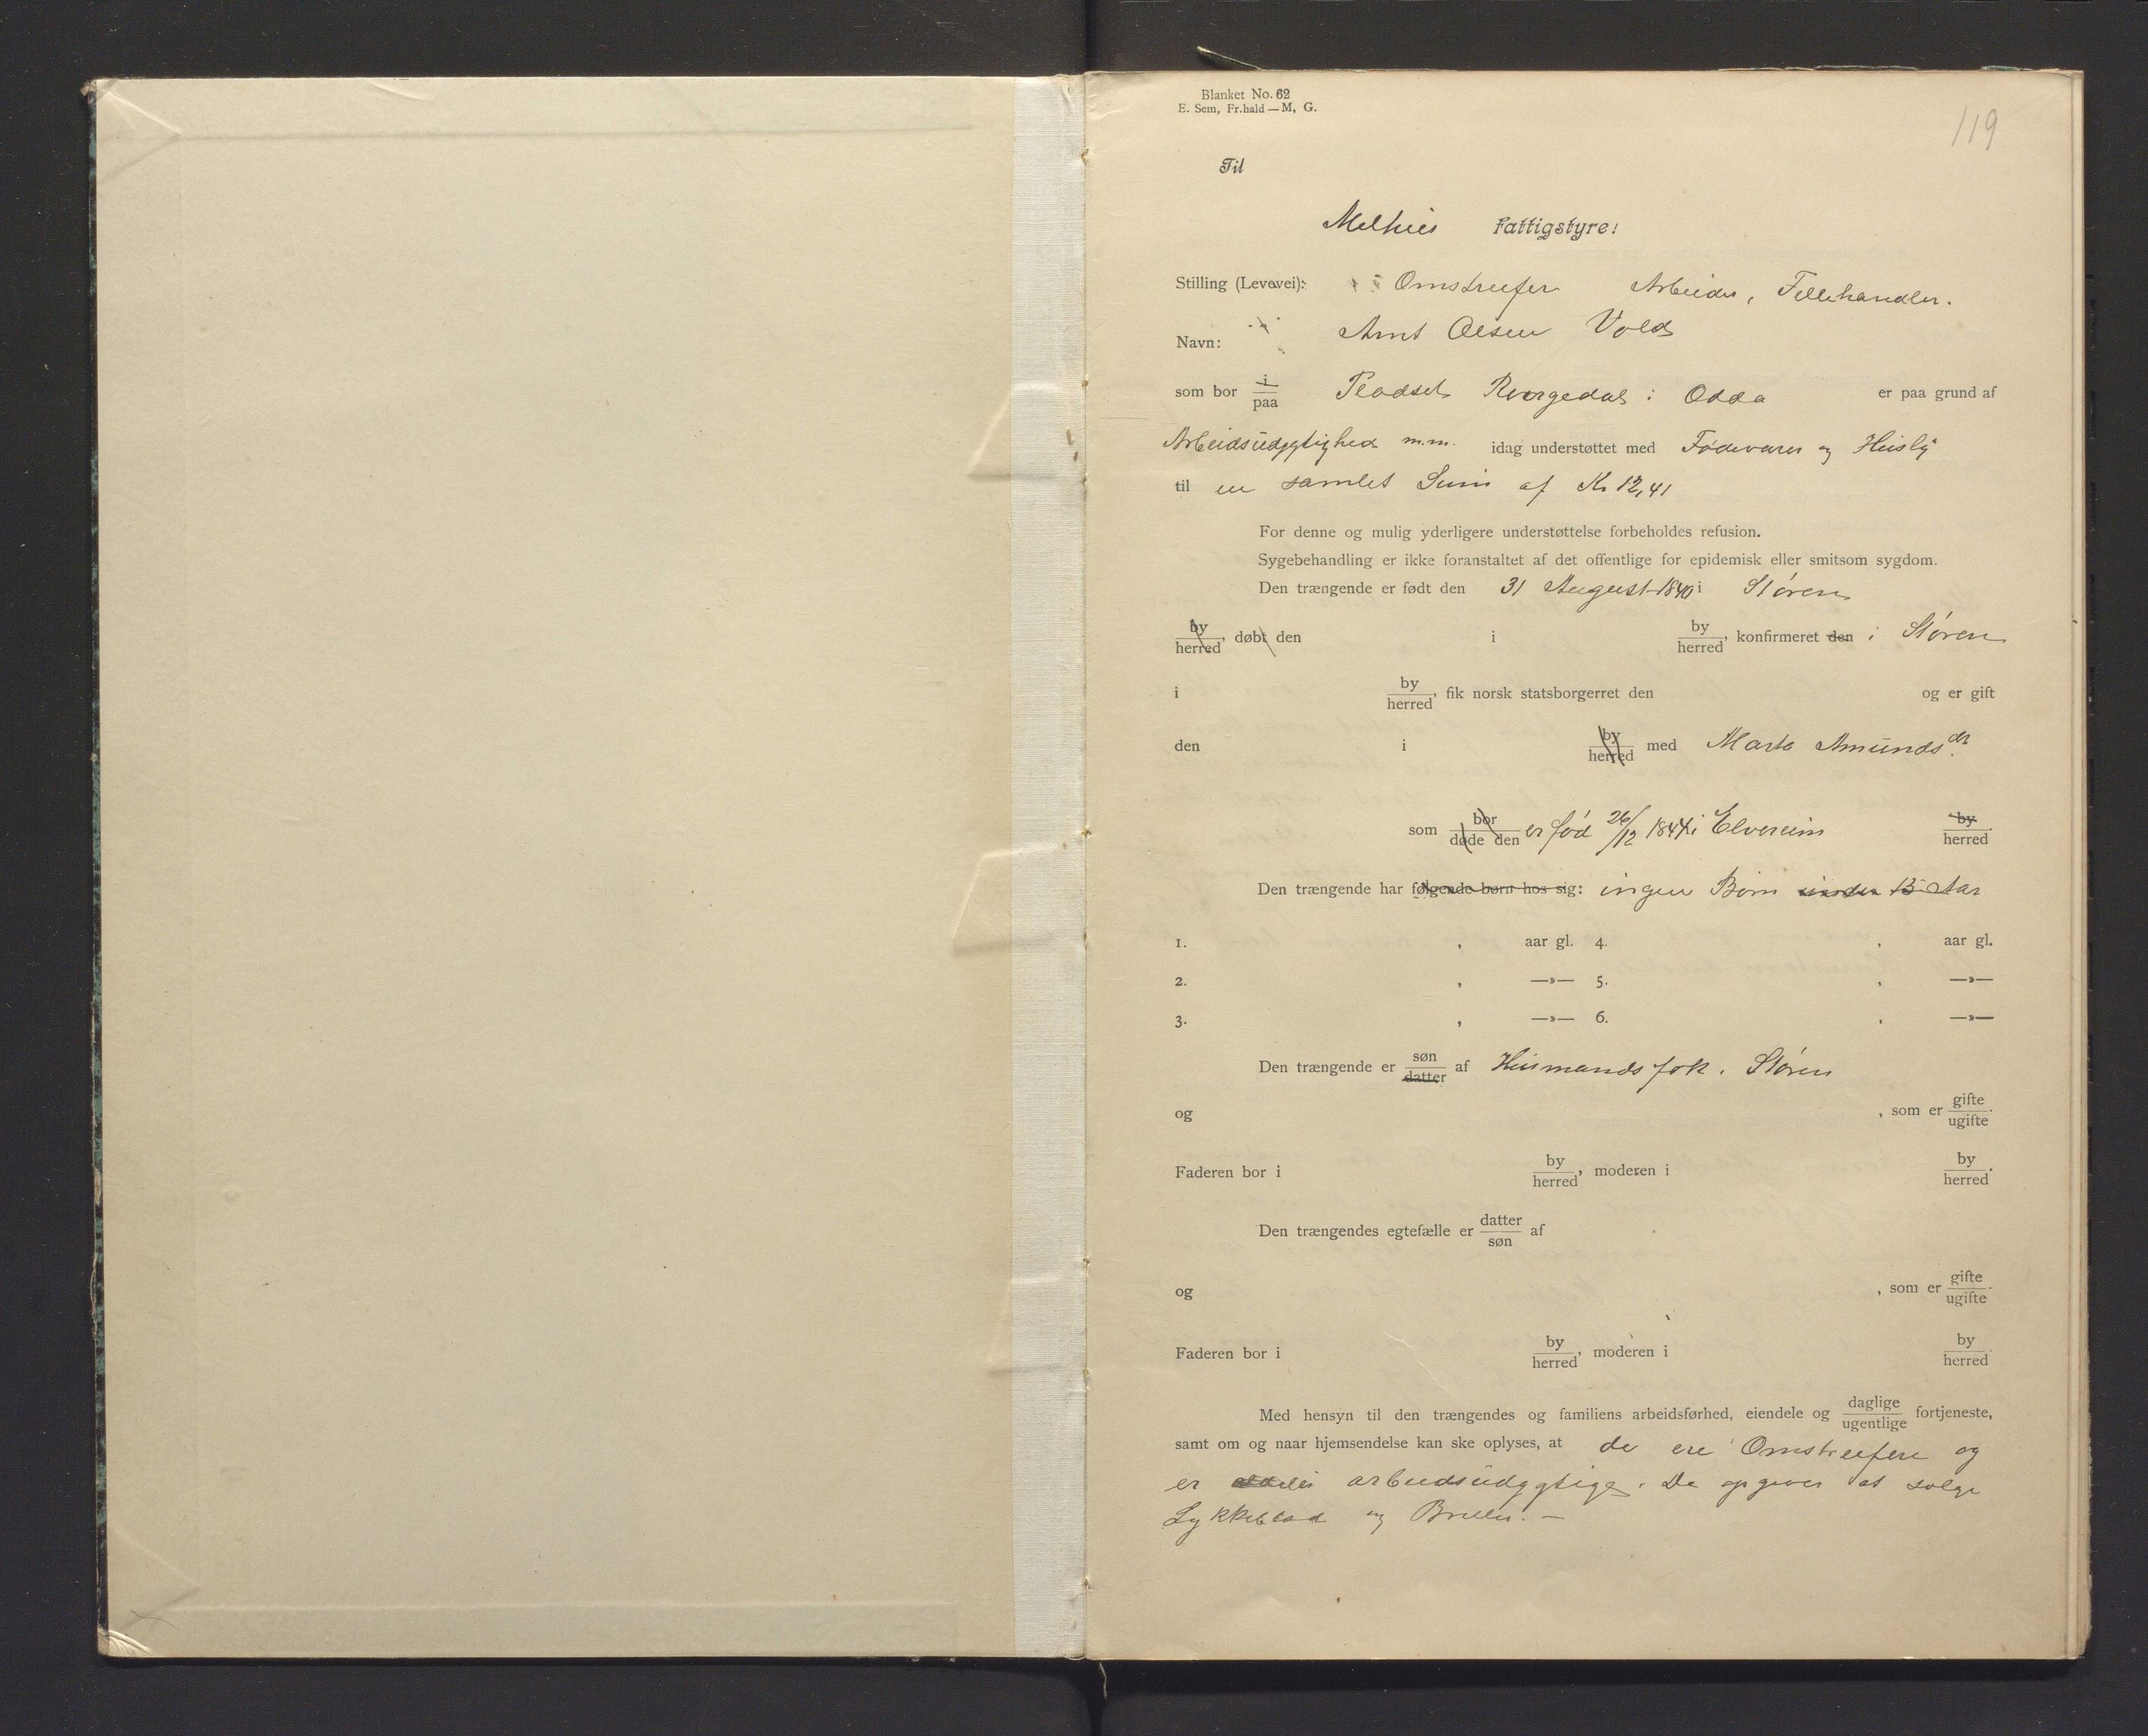 Blanket No. 62
E. Sem, Fr.hald — M, G.
119
Til
Melhus Fattigstyre!
Stilling (Levevei): Omstreifer Arbeider, Fellehandler.
Navn: Arnt Olsen Vold
som bor i/paa Pladsen Ragedal i Odda er paa grund af
Arbeidsudygtighed m.m. idag understøttet med Fødevarer og Huisly
til en samlet Sum af Kr 12,41
For denne og mulig yderligere understøttelse forbeholdes refusion.
Sygebehandling er ikke foranstaltet af det offentlige for epidemisk eller smitsom sygdom.
Den trængende er født den 31 August 1840 i Støren
by/herred, døbt den i by/herred, konfirmeret den i Støren
i by/herred, fik norsk statsborgerret den og er gift
den i by/herred med Marta Amundsdr.
som bor/døde den er fød 26/12 1844 i Elverum by/herred.
Den trængende har følgende børn hos sig: ingen Børn under 15 Aar
1. , aar gl. 4. , aar gl.
2. , —»— 5. , —»—
3. , —»— 6. , —»—
Den trængende er søn/datter af Husmandsfolk. Støren
og , som er gifte/ugifte.
Faderen bor i by/herred, moderen i by/herred.
Den trængendes egtefælle er datter/søn af
og , som er gifte/ugifte.
Faderen bor i by/herred, moderen i by/herred.
Med hensyn til den trængendes og familiens arbeidsførhed, eiendele og daglige/ugentlige fortjeneste,
samt om og naar hjemsendelse kan ske oplyses, at de ere Omstreifere og
er aldeles arbeidsudygtige. De opgiver at sælge
Lykkeblad og Briller. —